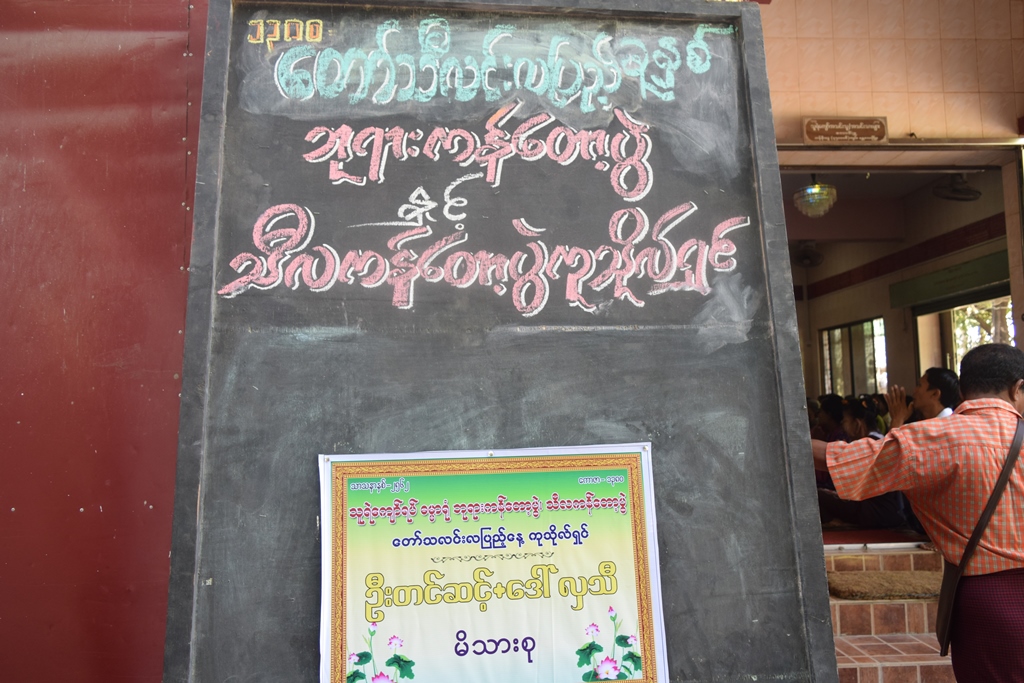 ၁၃၈၀
တော်သလင်းလပြည့်ခုနှစ်
ဘုရားကန်တော့ပွဲ
နှင့်
သီလကန်တော့ပွဲကုသိုလ်ရှင်
သာသနာနှစ်-၂၅၆၂
ကောဇာ-၁၃၈၀
ဘုရားကန်တော့ပွဲ၊ သီလကန်တော့ပွဲ
တော်သလင်းလပြည့်နေ့ ကုသိုလ်ရှင်
ဦးတင်ဆင့်+ဒေါ်လှသီ
မိသားစု